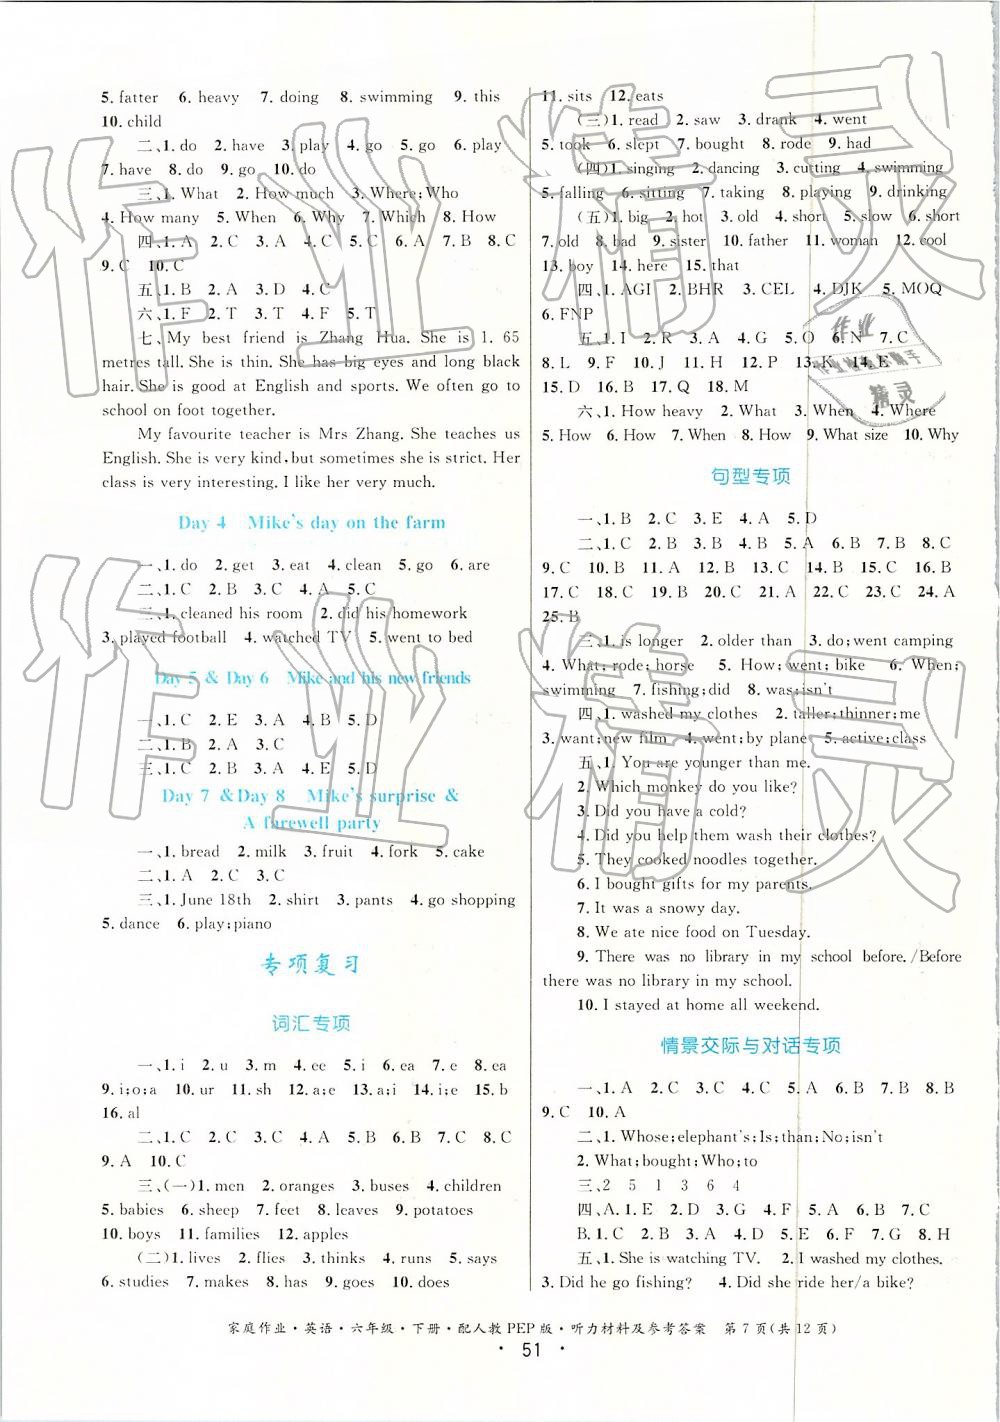 5. fatter  6. heavy  7. doing  8. swimming  9. this
10. child
二、1. do  2. have  3. play  4. go  5. go  6. play
7. have  8. do  9. go  10. do
三、1. What  2. How much  3. Where;Who
4. How many  5. When  6. Why  7. Which  8. How
四、1. A  2. C  3. A  4. C  5. C  6. A  7. B  8. C
9. C  10. C
五、1. B  2. A  3. D  4. C
六、1. F  2. T  3. T  4. F  5. T
七、My best friend is Zhang Hua. She is 1. 65
metres tall. She is thin. She has big eyes and long black
hair. She is good at English and sports. We often go to
school on foot together.
My favourite teacher is Mrs Zhang. She teaches us
English. She is very kind, but sometimes she is strict. Her
class is very interesting. I like her very much.
Day 4  Mike's day on the farm
一、1. do  2. get  3. eat  4. clean  5. go  6. are
二、1. C  2. B  3. C  4. A  5. C
三、1. cleaned his room  2. did his homework
3. played football  4. watched TV  5. went to bed
Day 5 & Day 6  Mike and his new friends
一、1. C  2. E  3. A  4. B  5. D
二、1. B  2. A  3. C
三、1. C  2. B  3. A  4. E  5. D
Day 7 & Day 8  Mike's surprise &
A farewell party
一、1. bread  2. milk  3. fruit  4. fork  5. cake
二、1. A  2. C  3. C
三、1. June 18th  2. shirt  3. pants  4. go shopping
5. dance  6. play;piano
专项复习
词汇专项
一、1. i  2. u  3. m  4. ee  5. i  6. ea  7. e  8. ea
9. i;o;a  10. ur  11. sh  12. a;e  13. a;i  14. e;t  15. b
16. al
二、1. C  2. C  3. C  4. A  5. A  6. B  7. C  8. C
9. A  10. C
三、(一)1. men  2. oranges  3. buses  4. children
5. babies  6. sheep  7. feet  8. leaves  9. potatoes
10. boys  11. families  12. apples
(二)1. lives  2. flies  3. thinks  4. runs  5. says
6. studies  7. makes  8. has  9. goes  10. does
11. sits  12. eats
(三)1. read  2. saw  3. drank  4. went
5. took  6. slept  7. bought  8. rode  9. had
(四)1. singing  2. dancing  3. cutting  4. swimming
5. falling  6. sitting  7. taking  8. playing  9. drinking
(五)1. big  2. hot  3. old  4. short  5. slow  6. short
7. old  8. bad  9. sister  10. father  11. woman  12. cool
13. boy  14. here  15. that
四、1. AGI  2. BHR  3. CEL  4. DJK  5. MOQ
6. FNP
五、1. I  2. R  3. A  4. G  5. O  6. N  7. C
8. L  9. F  10. J  11. H  12. P  13. K  14. E
15. D  16. B  17. Q  18. M
六、1. How heavy  2. What  3. When  4. Where
5. How  6. How  7. When  8. How  9. What size  10. Why
句型专项
一、1. B  2. C  3. E  4. A  5. D
二、1. C  2. B  3. B  4. B  5. A  6. B  7. B  8. C
9. C  10. B  11. A  12. B  13. C  14. C  15. B  16. B
17. C  18. C  19. B  20. C  21. A  22. C  23. C  24. A
25. B
三、1. is longer  2. older than  3. do;went camping
4. What;rode;horse  5. How;went;bike  6. When;
swimming  7. fishing;did  8. was;isn't
四、1. washed my clothes  2. taller;thinner;me
3. want;new film  4. went;by plane  5. active;class
五、1. You are younger than me.
2. Which monkey do you like?
3. Did you have a cold?
4. Did you help them wash their clothes?
5. They cooked noodles together.
6. I bought gifts for my parents.
7. It was a snowy day.
8. We ate nice food on Tuesday.
9. There was no library in my school before. /Before
there was no library in my school.
10. I stayed at home all weekend.
情景交际与对话专项
一、1. A  2. C  3. C  4. C  5. A  6. B  7. B  8. B
9. C  10. A
二、1. Whose;elephant's;Is;than;No;isn't
2. What;bought;Who;to
三、2  5  1  3  6  4
四、A. 1. E  2. D  3. G  4. F  5. A  6. B  7. C
B. 1. C  2. B  3. A  4. D  5. E  6. F  7. G  8. H
五、1. She is watching TV.  2. I washed my clothes.
3. Did he go fishing?  4. Did she ride her/a bike?
家庭作业·英语·六年级·下册·配人教 PEP 版·听力材料及参考答案  第 7 页(共 12 页)
· 51 ·
作业精灵
作业精灵
作业
精灵